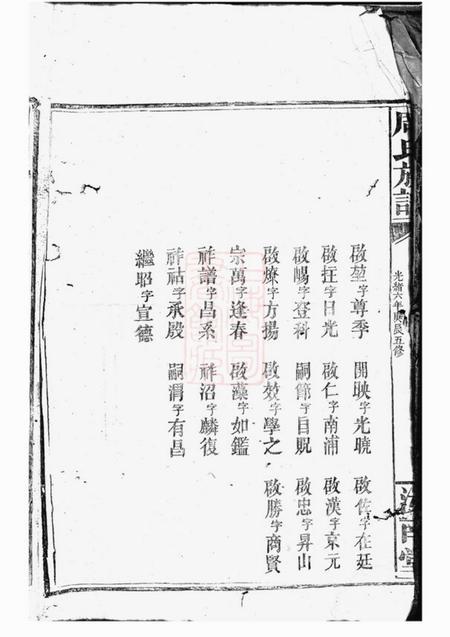 周氏族譜
光緒六年庚辰五修
啟堃字尊季 開映字光曉 啟佐字在廷
啟抂字日光 啟仁字南浦 啟漢字京元
啟暘字登科 嗣節字目睨 啟忠字昇山
啟爍字方揚 啟效字學之 啟勝字商賢
宗萬字逢春 啟藻字如鑑
祚譜字昌系 祚沼字麟復
祚祜字承殷 嗣渭字有昌
繼昭字宣德